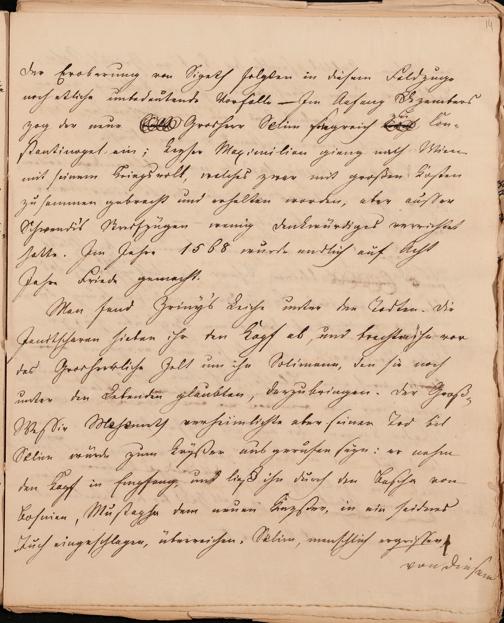 14
der Eroberung von Sigeth folgten in diesem Feldzuge
noch etliche unbedeutende Vorfälle – Im Anfang Dezembers
zog der neue Grosherr Selim siegreich in Con-
stantinopel ein; Kayser Maximilian gieng nach Wien
mit seinem Kriegsvolk, welches zwar mit großen Kosten
zusammen gebracht und erhalten worden, aber ausser
Schwendi's Streifzügen wenig denkwürdiges verrichtet
hatte. Im Jahre 1568 wurde endlich auf Acht
Jahre Friede gemacht.
Man fand Zriny's Leiche unter den Todten. Die
Janitscharen hieben ihr den Kopf ab, und brachten ihn vor
das Grosherrliche Zelt um ihn Solimann, den sie noch
unter den Lebenden glaubten, darzubringen. Der Groß-
Wessir Mehemeth verheimlichte aber seinen Tod bis
Selim würde zum Kayser ausgerufen seyn: er nahm
den Kopf in Empfang und ließ ihn durch den Bascha von
Bosnien, Mustapha dem neuen Kayser, in ein seidenes
Tuch eingeschlagen, überreichen. Selim, menschlich ergriffen
von diesem